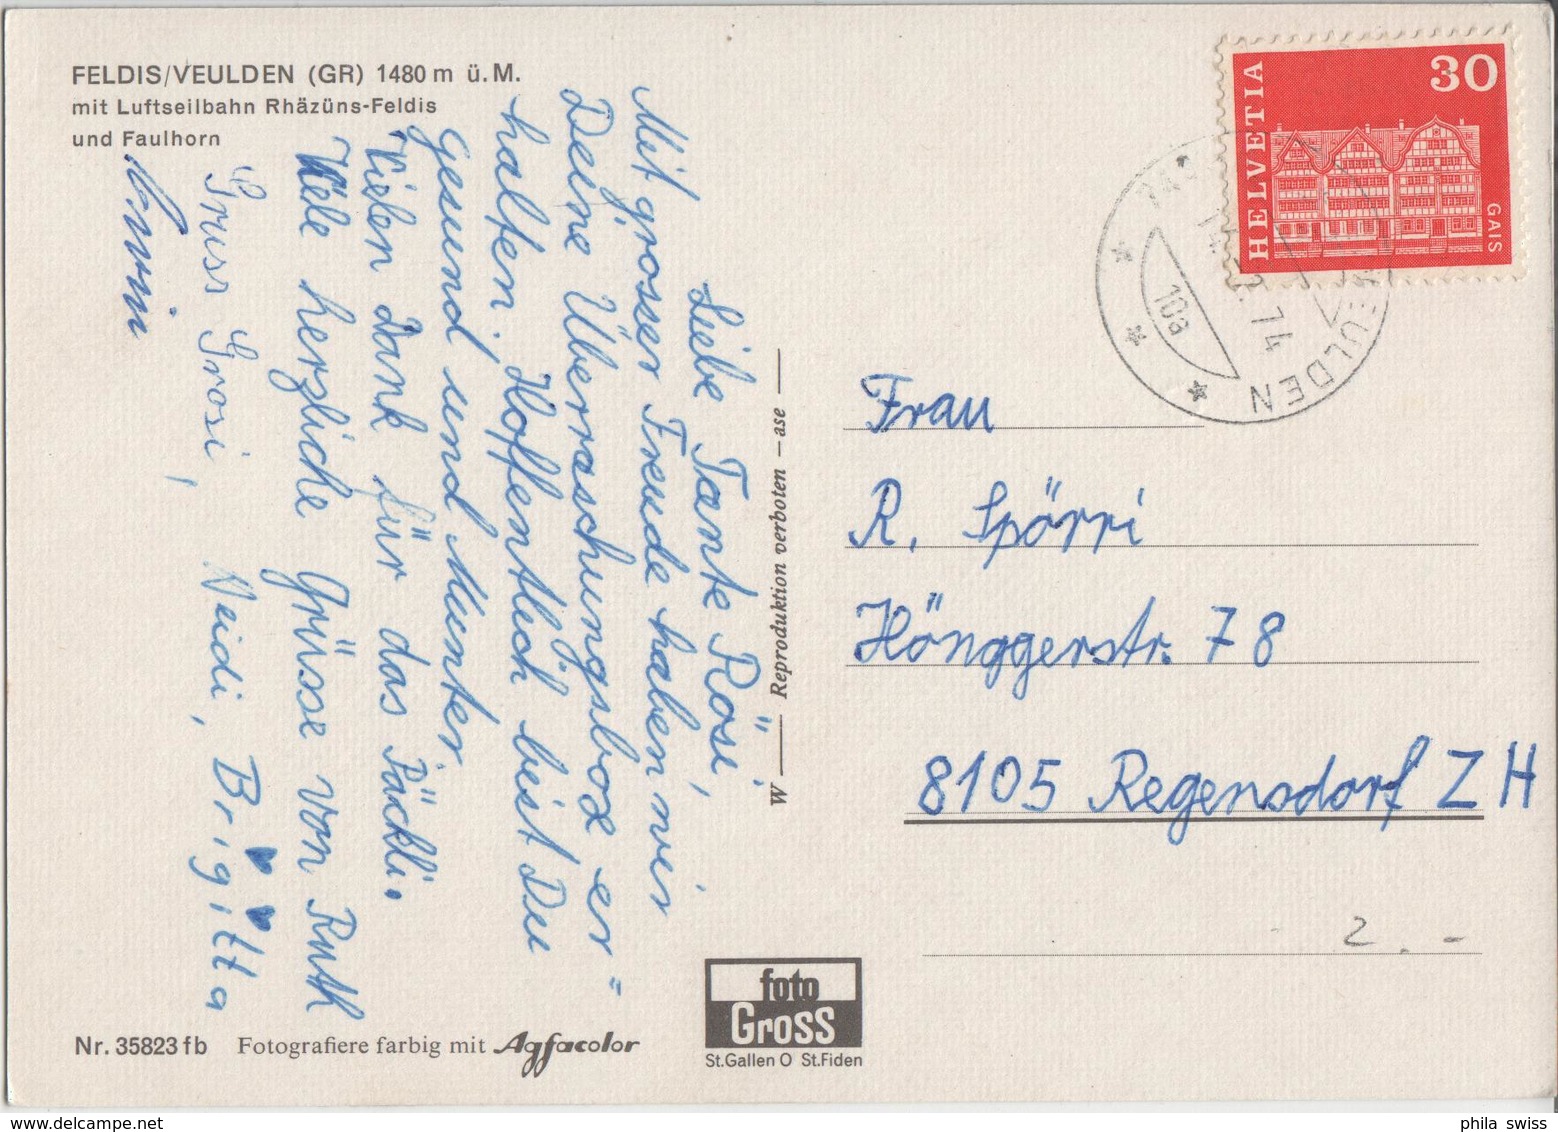 FELDIS/VEULDEN (GR) 1480 m ü. M.
mit Luftseilbahn Rhäzüns-Feldis
und Faulhorn
Liebe Tante Rösi,
Mit grosser Freude haben wir
Deine Überraschungsbox er=
halten. Hoffentlich bist Du
gesund und Munter
Vielen Dank für das Päckli.
Viele herzliche Grüsse von Ruth
Gruss Grosi, Heidi, Brigitta
W — Reproduktion verboten – ase —
HELVETIA
30
GAIS
VEULDEN
74
10a
Frau
R. Spörri
Hönggerstr. 78
8105 Regensdorf ZH
2.-
foto
Gross
St.Gallen O St.Fiden
Nr. 35823 fb Fotografiere farbig mit Agfacolor
phila swiss